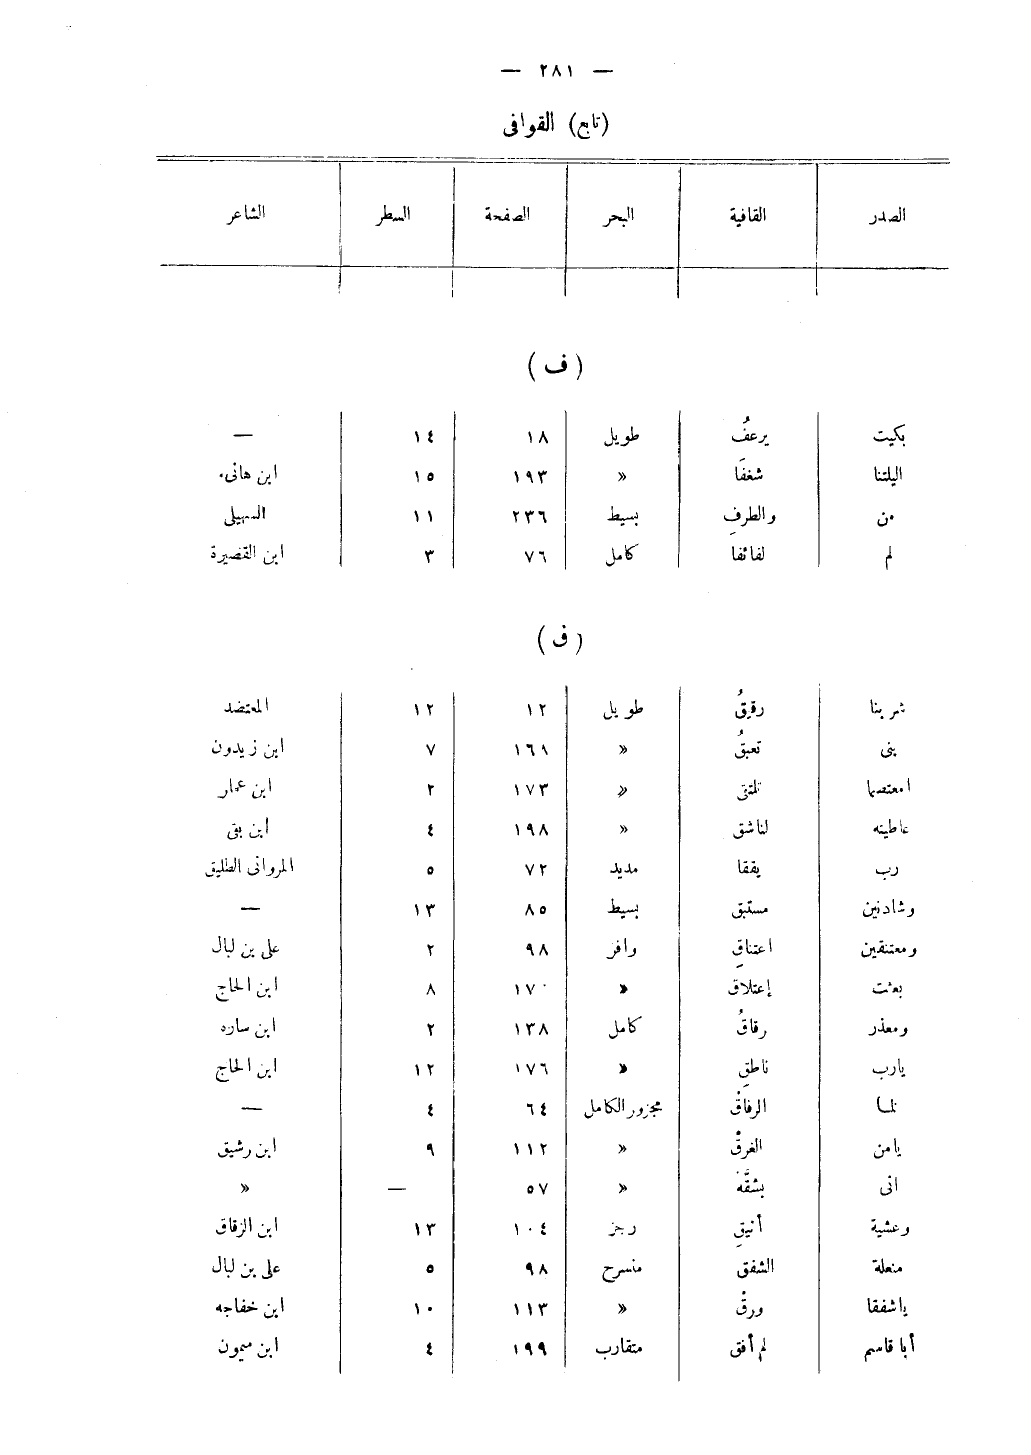 — ٢٨١ —
(تابع) القوافى
الصدر القافية البحر الصفحة السطر الشاعر
(ف)
بكيت يرعفُ طويل ١٨ ١٤ —
اليلتنا شغفَا » ١٩٣ ١٥ ابن هانىء
من والطرفِ بسيط ٢٣٦ ١١ السهيلى
لم لفائفا كامل ٧٦ ٣ ابن القصيرة
(ق)
شربنا رقيقُ طويل ١٢ ١٢ المعتضد
بنى تعبقُ » ١٦٨ ٧ ابن زيدون
امعتصما تلتقى » ١٧٣ ٢ ابن عمار
عاطيته لناشق » ١٩٨ ٤ ابن بقى
رب يققا مديد ٧٢ ٥ المروانى الطليق
وشادنين مستبق بسيط ٨٥ ١٣ —
ومعتنقين اعتناقِ وافر ٩٨ ٢ على بن لبال
بعثت إعتلاق » ١٧٠ ٨ ابن الحاج
ومعذر رقاقُ كامل ١٣٨ ٢ ابن ساره
يارب ناطقِ » ١٧٦ ١٢ ابن الحاج
لما الرفاقْ مجزور الكامل ٦٤ ٤ —
يامن الغرقْ » ١١٢ ٩ ابن رشيق
انى بشقَّهْ » ٥٧ — »
وعشية أنيقِ رجز ١٠٤ ١٣ ابن الزقاق
منعلة الشفق منسرح ٩٨ ٥ على بن لبال
ياشفقا ورقْ » ١١٣ ١٠ ابن خفاجه
أبا قاسم لم أفق متقارب ١٩٩ ٤ ابن ميمون